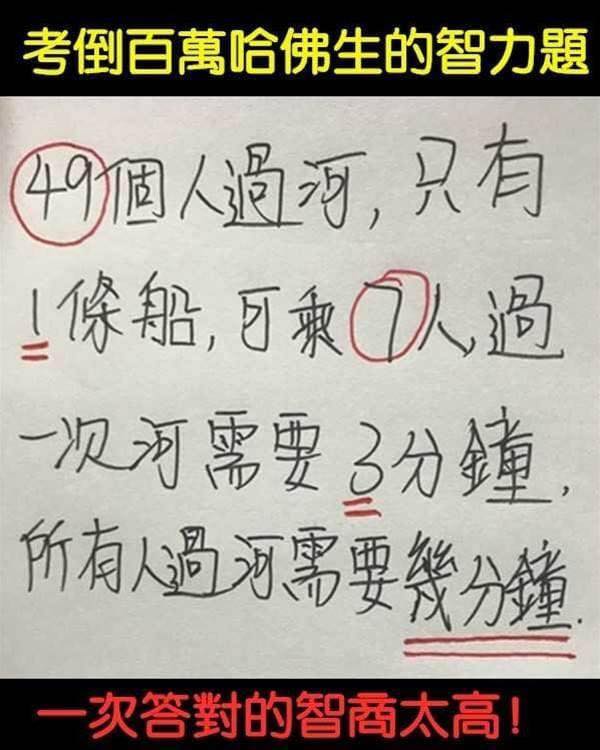 考倒百萬哈佛生的智力題
49個人過河,只有
1條船,可乘7人,過
一次河需要3分鐘,
所有人過河需要幾分鐘.
一次答對的智商太高!